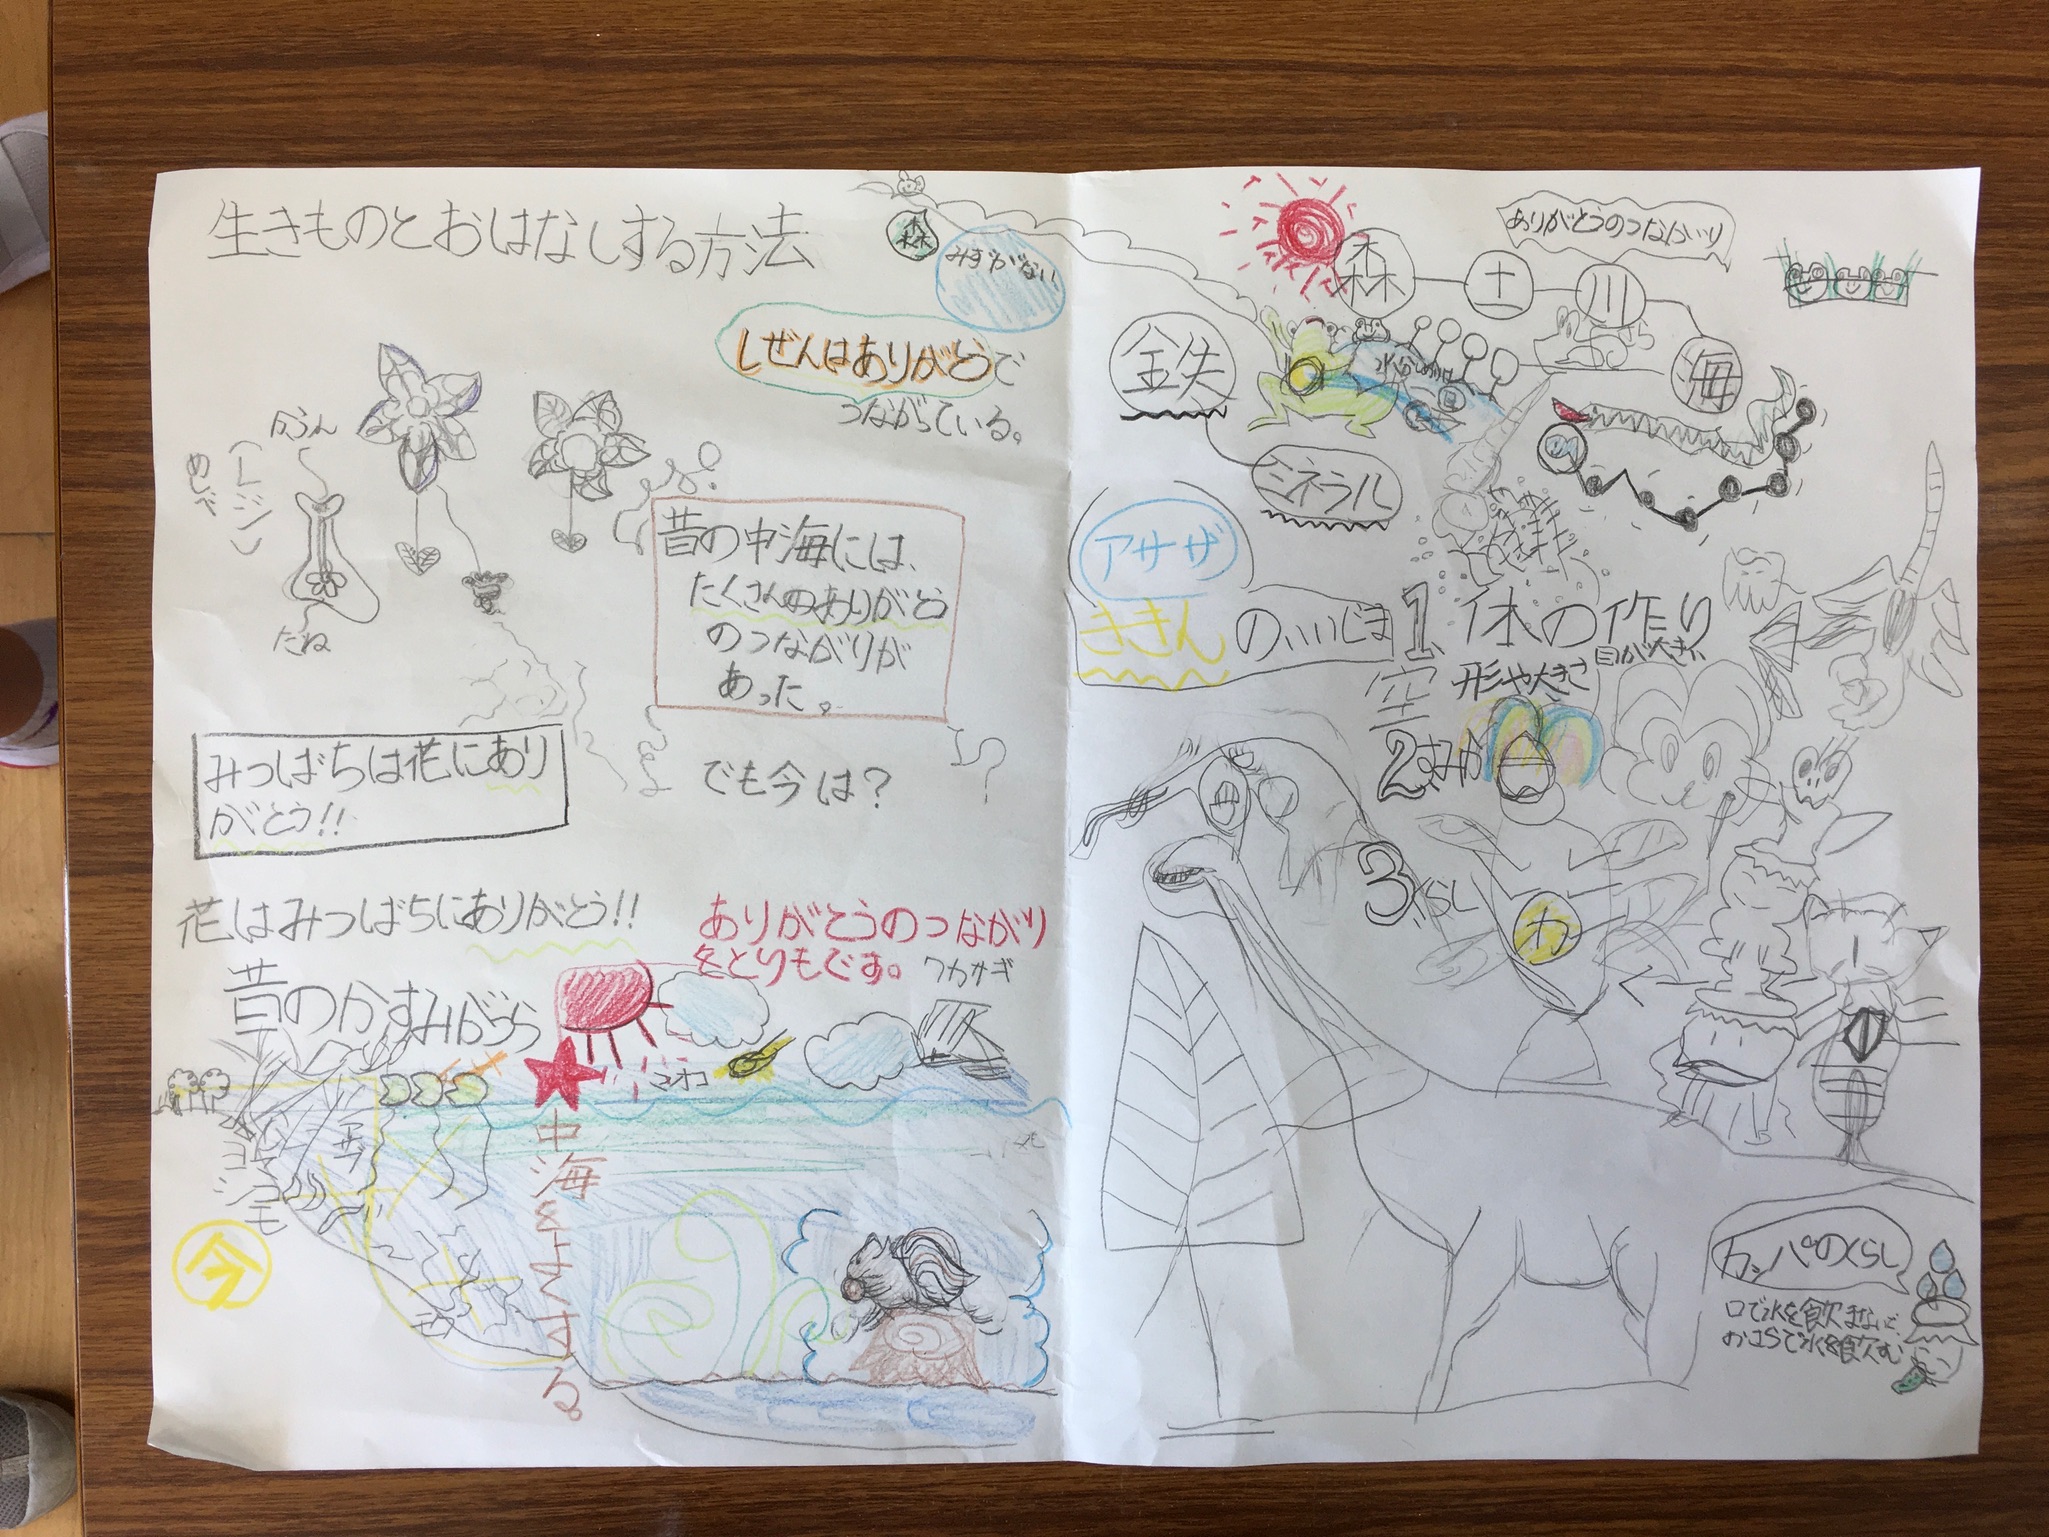 生きものとおはなしする方法
森
みずがない
しぜんはありがとうで
つながっている。
かふん
(レジン)
めしべ
たね
昔の中海には、
たくさんのありがとう
のつながりが
あった。
でも今は?
みつばちは花にあり
がとう!!
花はみつばちにありがとう!!
ありがとうのつながり
をとりもどす。
ワカサギ
昔のかすみがうら
マオコ
アサザ
今
中海
する。
ありがとうのつながり
森
土
川
海
鉄
ミネラル
アサザ
ききんのいいじま
1.体の作り
形や大きさ
目が大きい
空
2すみか
3くらし
カ
カッパのくらし
口で水を飲まないで、
おさらで水を飲む